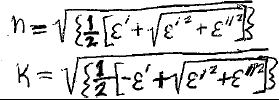 n = √{1/2[ε' + √ε'² + ε''²]}
K = √{1/2[-ε' + √ε'² + ε''²]}